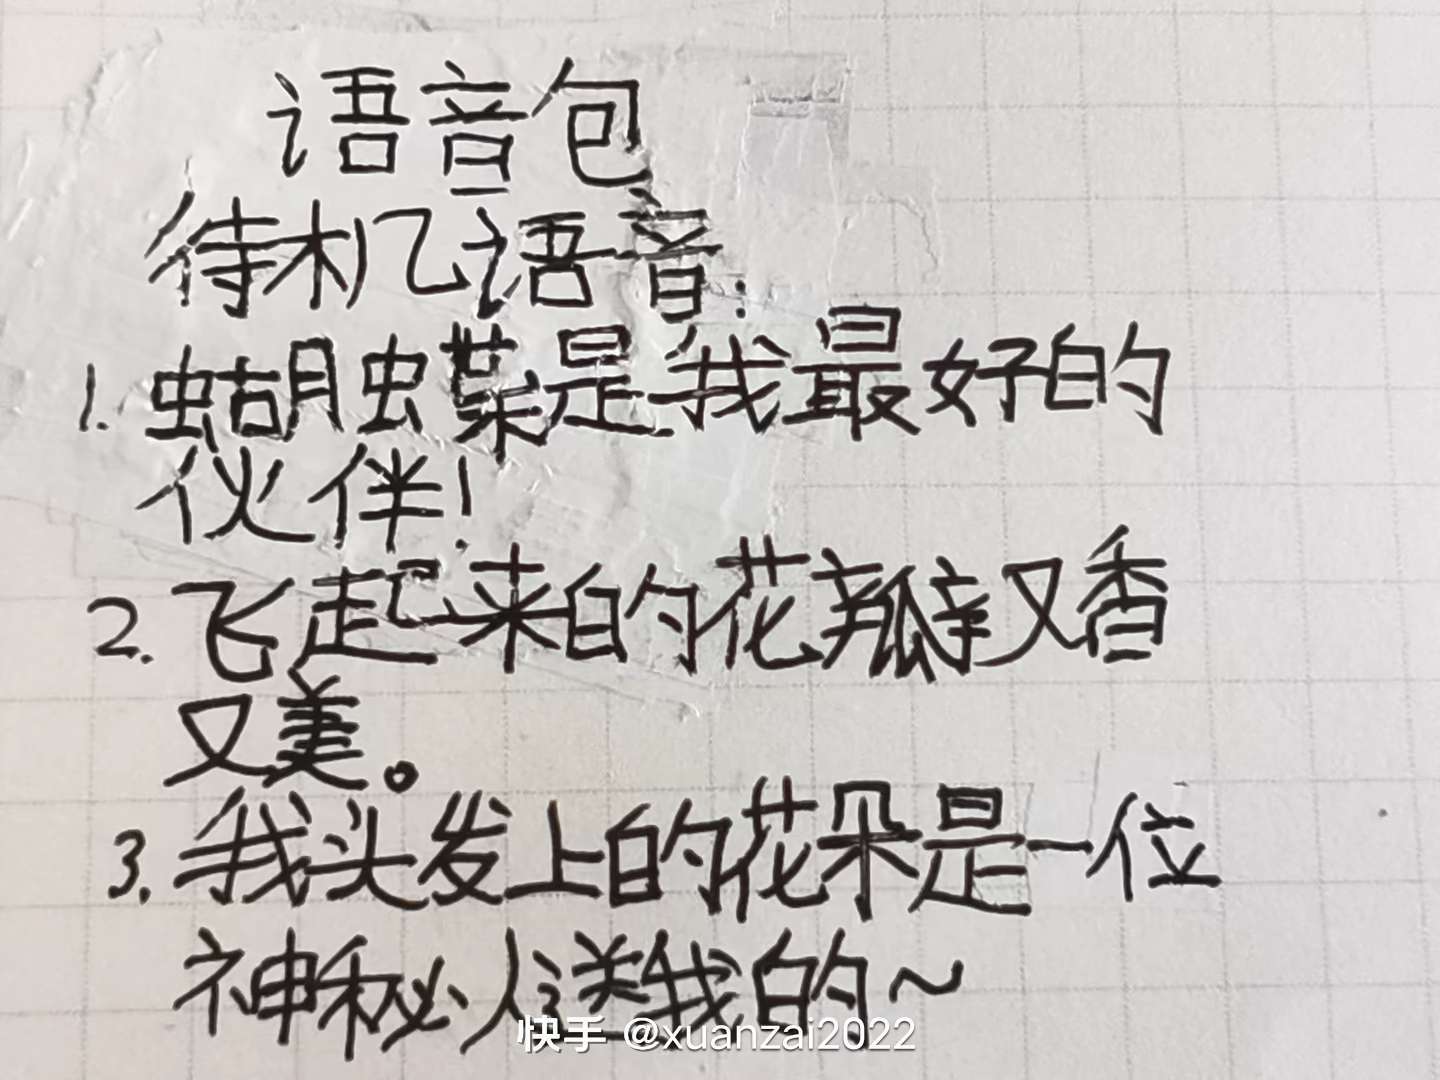 语音包
待机语音:
1. 蝴蝶是我最好的
伙伴!
2. 飞起来的花瓣又香
又美。
3. 我头发上的花朵是一位
神秘人送我的~
快手 @xuanzai2022